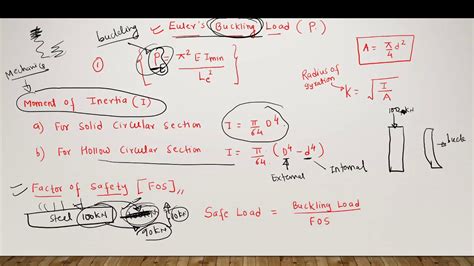 buckling
Euler's Buckling Load (P)
Mechanics
①
P = π² E Imin / Le²
A = π/4 d²
Radius of gyration
K = √(I/A)
Moment of Inertia (I)
a) For Solid Circular Section I = π/64 D⁴
b) For Hollow Circular Section I = π/64 (D⁴ - d⁴)
External
Internal
100 kN
buck
Factor of Safety [FOS]
Steel
100KN
10KN
90KN
Safe Load = Buckling Load / FOS